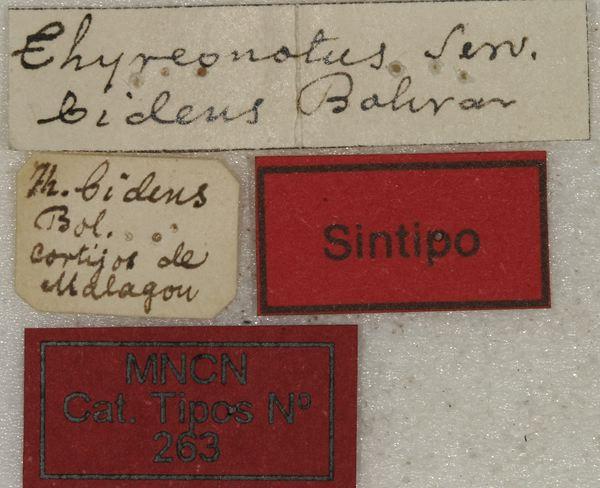 Thyreonotus Serv.
bidens Bolivar
Th. bidens
Bol.
cortijos de
Malagon
Sintipo
MNCN
Cat. Tipos Nº
263